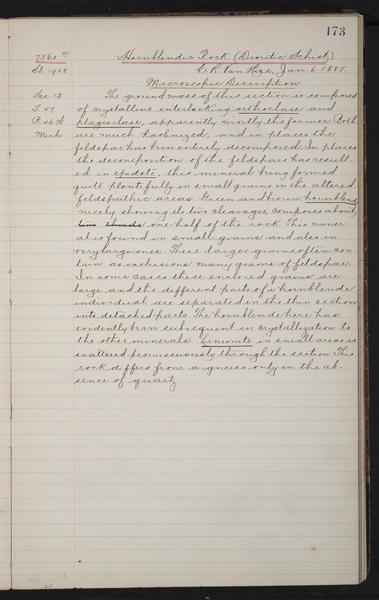 173
7560
Sl. 1988
Hornblendic Rock (Dioritic Schist)
C. R. Van Hise, Jan. 6, 1885.
Microscopic Description
Sec 13
T. 47
R. 46 W.
Mich
The ground mass of this section is composed
of crystalline interlocking orthoclase and
plagioclase, apparently mostly the former. Both
are much kaolinized, and in places the
feldspar has been entirely decomposed. In places
the decomposition of the feldspar has result-
ed in epidote, this mineral being formed
quite plentifully in small grains in the altered
feldspathic areas. Green and brown hornblende
nicely showing its two cleavages composes about
two thirds one half of the rock. This miner-
al is found in small grains and also in
very large ones. These larger grains often con-
tain as inclusions many grains of feldspar.
In some cases these enclosed grains are
large and the different parts of a hornblende
individual are separated in the thin section
into detached parts. The hornblende here has
evidently been subsequent in crystallization to
the other minerals. Limonite in small areas is
scattered promiscuously through the section. This
rock differs from a gneiss only in the ab-
sence of quartz